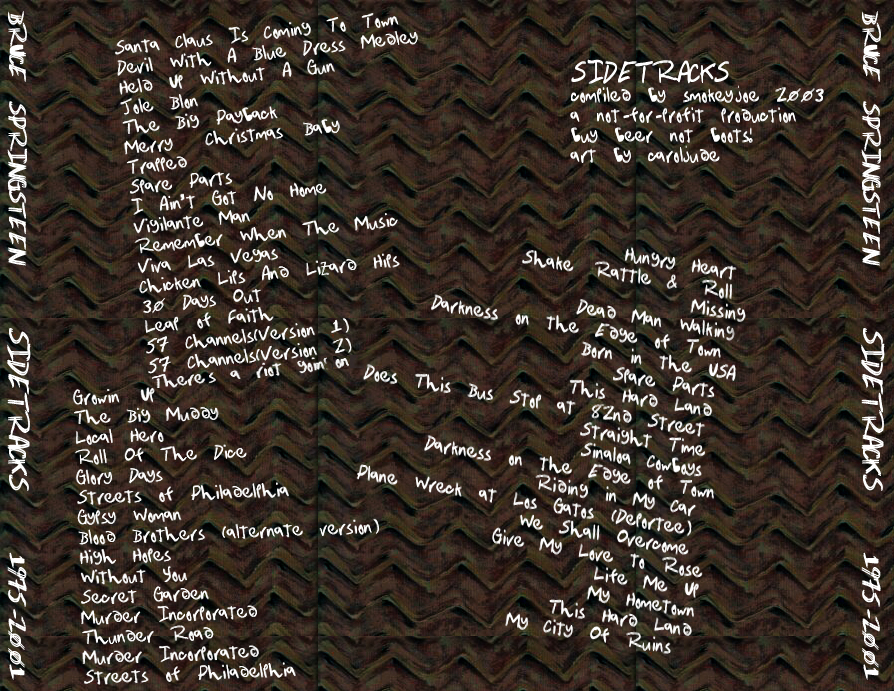 BRUCE SPRINGSTEEN SIDETRACKS 1975-2001
Santa Claus Is Coming To Town
Devil With A Blue Dress Medley
Held Up Without A Gun
Jole Blon
The Big Payback
Merry Christmas Baby
Trapped
Spare Parts
I Ain't Got No Home
Vigilante Man
Remember When The Music
Viva Las Vegas
Chicken Lips And Lizard Hips
30 Days Out
Leap of Faith
57 Channels(Version 1)
57 Channels(Version 2)
There's a riot goin' on
Growin Up
The Big Muddy
Local Hero
Roll Of The Dice
Glory Days
Streets of Philadelphia
Gypsy Woman
Blood Brothers (alternate version)
High Hopes
Without You
Secret Garden
Murder Incorporated
Thunder Road
Murder Incorporated
Streets of Philadelphia
SIDETRACKS
compiled by smokeyjoe 2003
a not-for-profit production
buy beer not boots!
art by caroljude
Hungry Heart
Shake Rattle & Roll
Missing
Dead Man Walking
Darkness on The Edge of Town
Born in The USA
Spare Parts
This Hard Land
Does This Bus Stop at 82nd Street
Straight Time
Sinaloa Cowboys
Darkness on The Edge of Town
Riding in My Car
Plane Wreck at Los Gatos (Deportee)
We Shall Overcome
Give My Love To Rose
Life Me Up
My Hometown
This Hard Land
My City Of Ruins
BRUCE SPRINGSTEEN SIDETRACKS 1975-2001